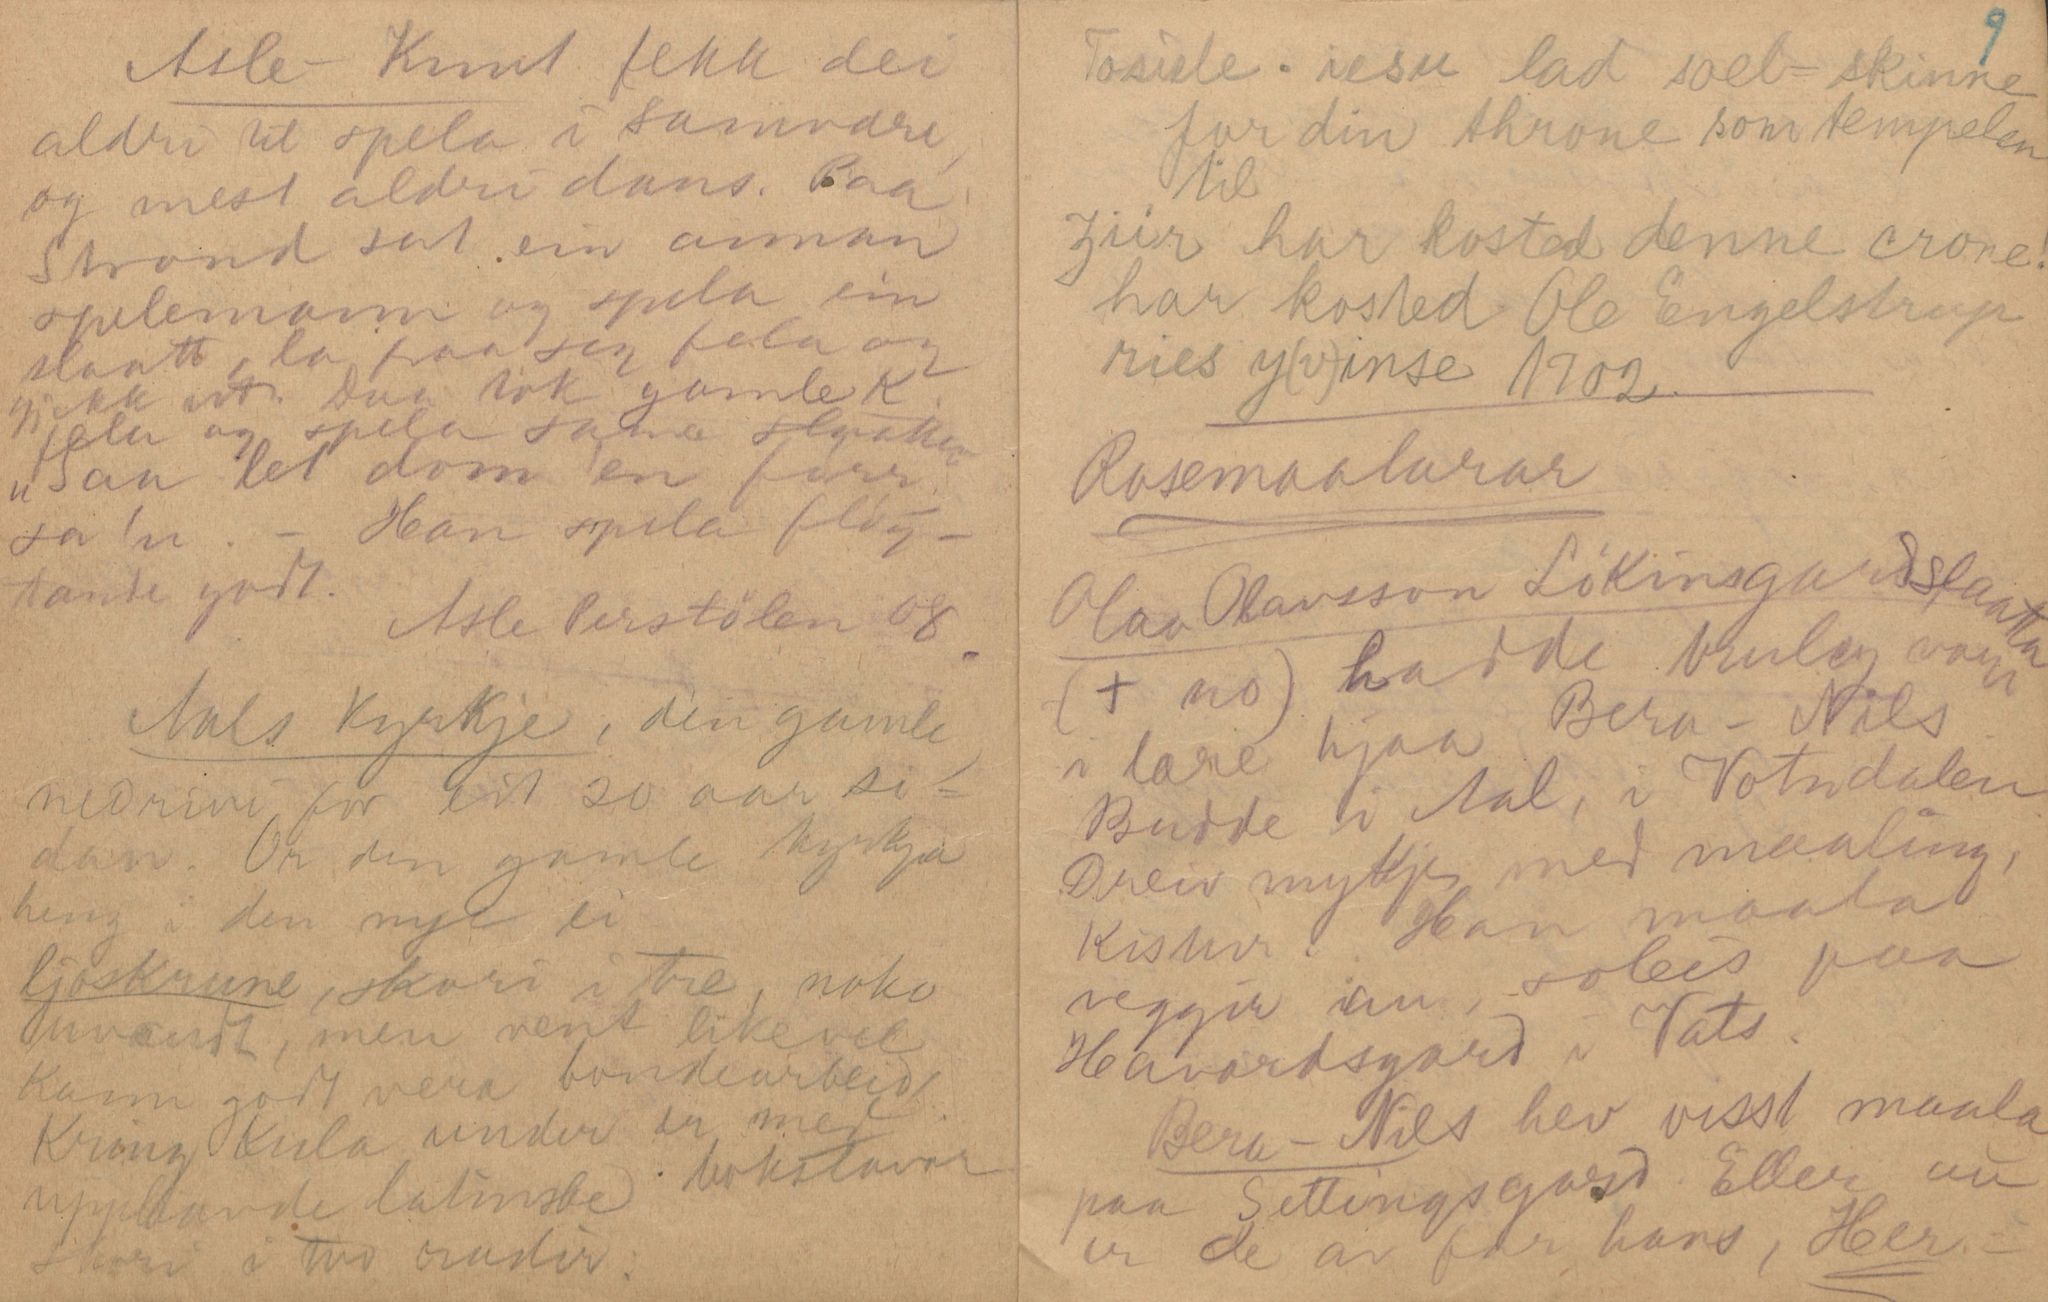 Asle-Knut fekk dei
aldri til spela i samvære,
og mest aldri dans. Paa
Strond sat ein annan
spelemann og spela ein
slaatt, la fraa seg fela og
gjekk ut. Daa tok gamle K.
fela og spela same slaatten
"Saa let dom en fürr
sa'n. – Han spela fløy-
tande godt.
Asle Perstölen 08.
Aals Kyrkje, den gamle
nedrivi for eit 20 aar si-
dan. Or den gamle kyrkja
heng i den nye ei
ljoskrune, skori i tre, noko
uvandt, men vent likevel
Kann godt vera bondearbeid.
Kring kula under er med
upphavde latinske bokstavar
skori i tvo rader:
9
Toside. iesu lad soel- skinne
for din throne som tempelen
til
Ziir har kosted denne crone!
har kosted Ole Engelstrup
ries y(v)inse 1702.
Rosemaalarar
Olav Olavsson Lökinsgard Slaatta
(+ no) hadde truleg vore
i lære hjaa Bera-Nils
Budde i Aal, i Votndalen
Dreiv mykje med maaling,
Kistur. Han maala
veggir au, soleis paa
Havardsgard i Vats.
Bera-Nils hev visst maala
paa Settingsgard. Eller au
er de av far hans, Her-